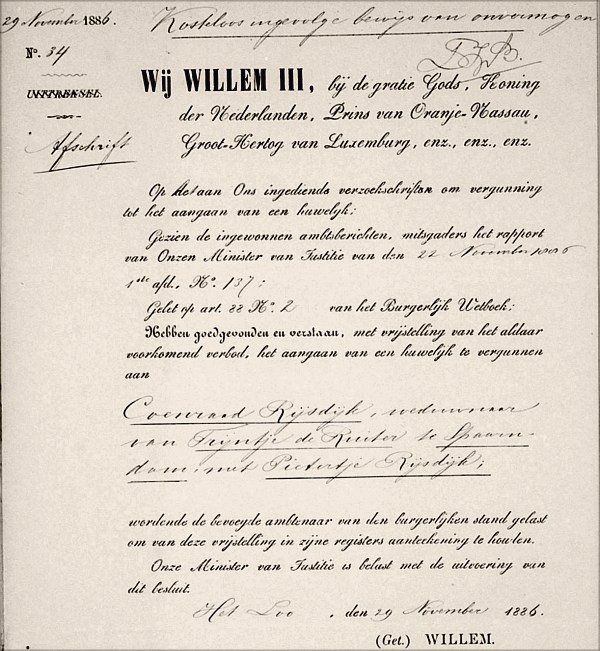 29 November 1886.
Kosteloos ingevolge bewijs van onvermogen
No. 34
UITTREKSEL.
Afschrift
Wij WILLEM III, bij de gratie Gods, Koning
der Nederlanden, Prins van Oranje-Nassau,
Groot-Hertog van Luxemburg, enz., enz., enz.
Op het aan Ons ingediende verzoekschriften om vergunning
tot het aangaan van een huwelijk;
Gezien de ingewonnen ambtsberichten, mitsgaders het rapport
van Onzen Minister van Justitie van den 22 November 1886
1ste afd. No. 137;
Gelet op art. 88 No. 2 van het Burgerlijk Wetboek;
Hebben goedgevonden en verstaan, met vrijstelling van het aldaar
voorkomend verbod, het aangaan van een huwelijk te vergunnen
aan
Coenraad Rijsdijk, weduwnaar
van Trijntje de Ruiter te Spaarn-
dam, met Pietertje Rijsdijk;
wordende de bevoegde ambtenaar van den burgerlijken stand gelast
om van deze vrijstelling in zijne registers aanteekening te houden.
Onze Minister van Justitie is belast met de uitvoering van
dit besluit.
Het Loo, den 29 November 1886.
(Get.) WILLEM.